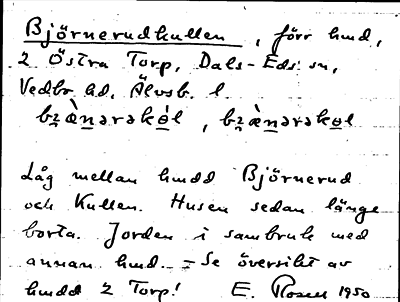 Björnerudkullen, förr hmd,
2 Östra Torp, Dals-Eds sn,
Vedbo hd. Älvsb. l.
Låg mellan hmdd Björnerud
och Kullen. Husen sedan länge
borta. Jorden i sambruk med
annan hmd. - Se översikt av
hmdd 2 Torp! E. Rosen 1950